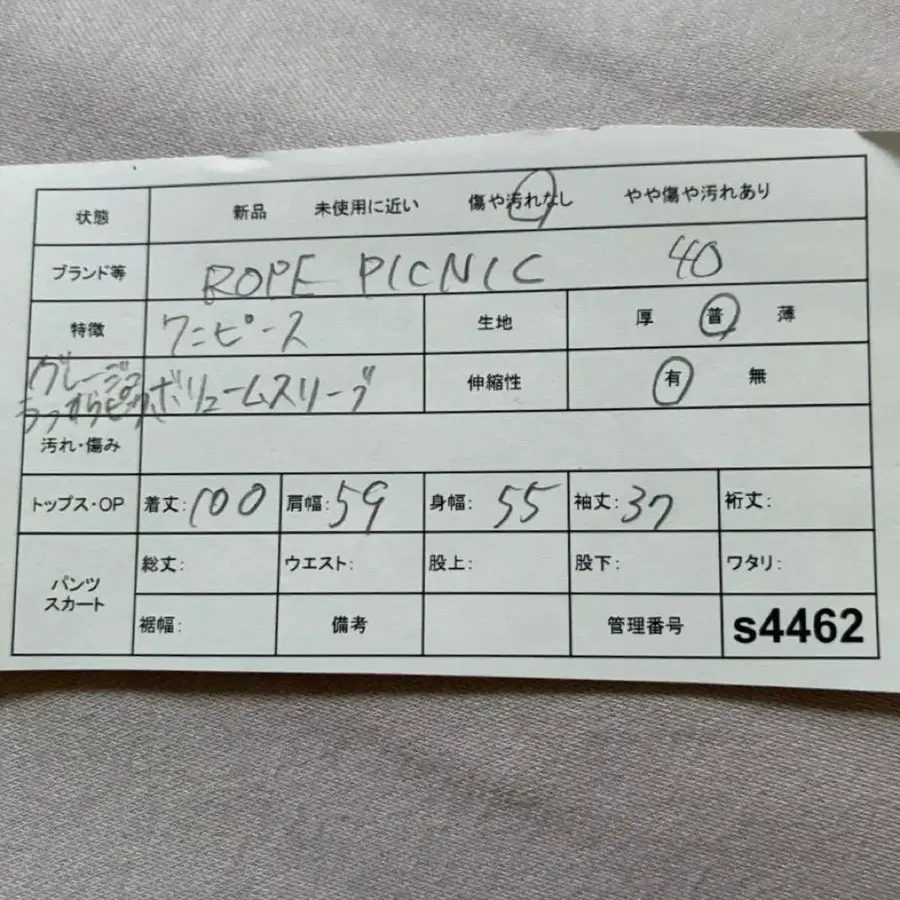 状態 新品 未使用に近い 傷や汚れなし やや傷や汚れあり
ブランド等 ROPE PICNIC 40
特徴 ワンピース 生地 厚 普 薄
グレージュ
うっすらピンク ボリュームスリーブ 伸縮性 有 無
汚れ・傷み
トップス・OP 着丈: 100 肩幅: 59 身幅: 55 袖丈: 37 裄丈:
パンツ スカート 総丈: ウエスト: 股上: 股下: ワタリ:
裾幅: 備考 管理番号 s4462